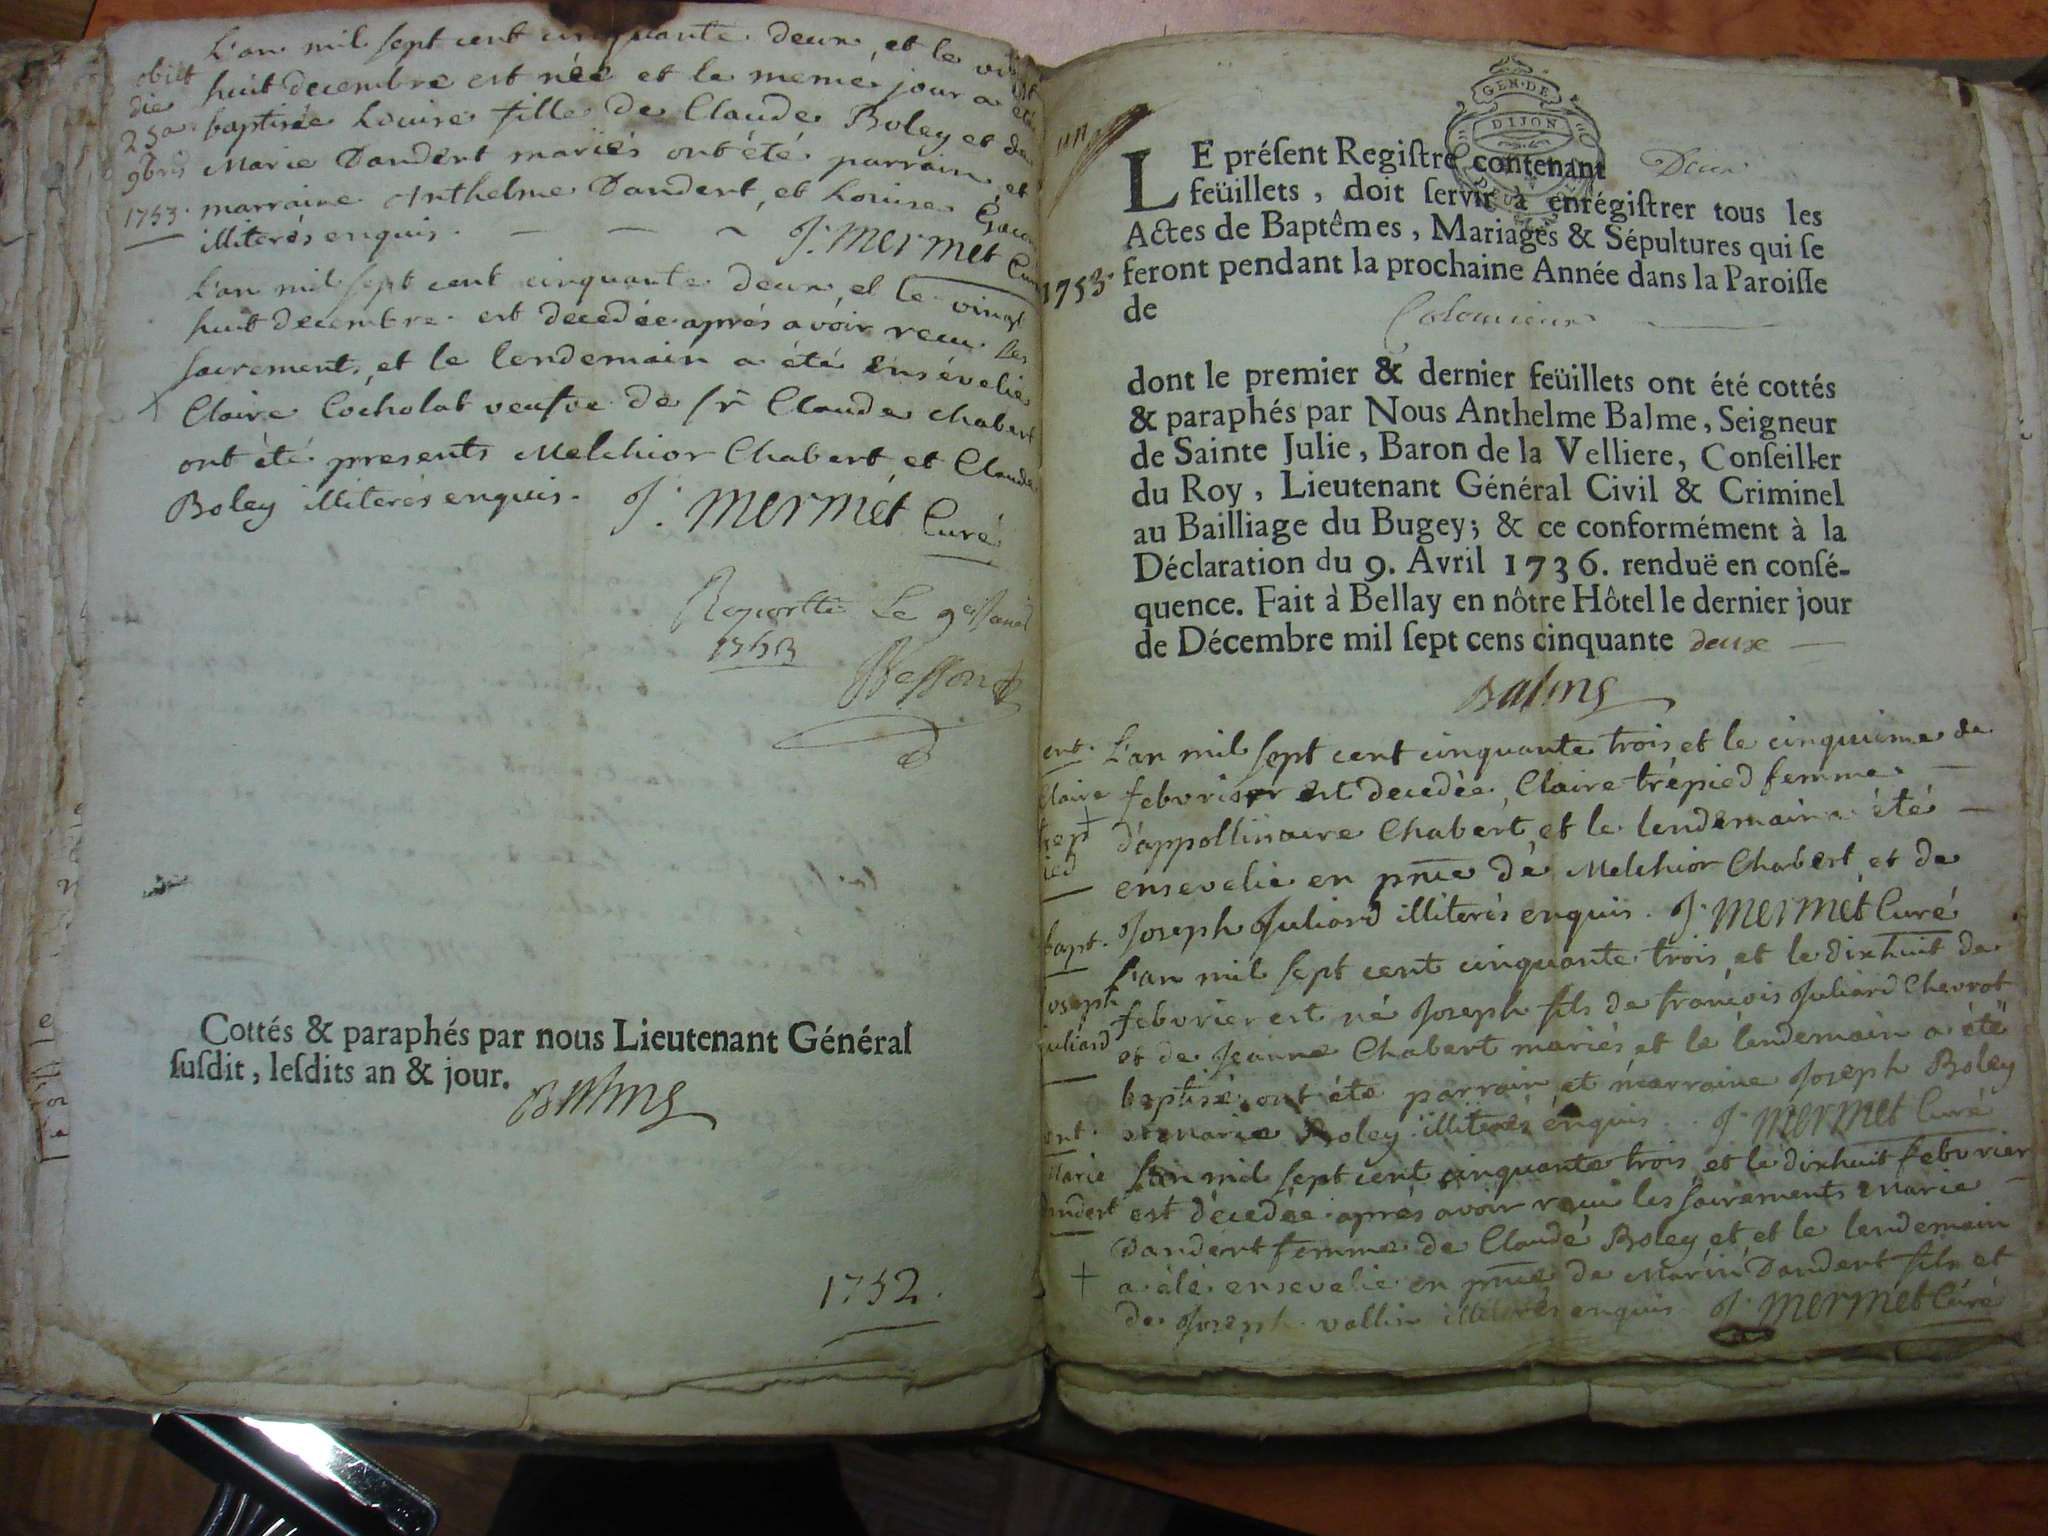 L'an mil sept cent cinquante deux, et le vingt
huit decembre est née et le meme jour a eté
baptisée Louise fille de Claude Boley et de
Marie Dandert mariés ont été parrain et
marraine Anthelme Dandert, et Louise
illiterés enquis. J. Mermet Curé
obiit
die
25a
9bris
1753.
L'an mil sept cent cinquante deux, et le vingt
huit decembre est decedée aprés avoir recu les
sacrements, et le lendemain a été ensévelie
Claire Cocholat veufve de sr Claude Chabert
ont été presents Melchior Chabert, et Claude
Boley illiterés enquis. J. Mermet Curé
Raporté le 9e
1753
Cottés & paraphés par nous Lieutenant Général
suſdit, leſdits an & jour. Balme
1752.
GEN. DE
DIJON
LE préſent Regiſtre contenant Deux
feüillets, doit ſervir à enrégiſtrer tous les
Actes de Baptêmes, Mariages & Sépultures qui ſe
feront pendant la prochaine Année dans la Paroiſſe
de Colomieux
1753.
dont le premier & dernier feüillets ont été cottés
& paraphés par Nous Anthelme Balme, Seigneur
de Sainte Julie, Baron de la Velliere, Conſeiller
du Roy, Lieutenant Général Civil & Criminel
au Bailliage du Bugey; & ce conformément à la
Déclaration du 9. Avril 1736. renduë en conſé-
quence. Fait à Bellay en nôtre Hôtel le dernier jour
de Décembre mil ſept cens cinquante deuxe
Balme
ent.
Claire
trep
ied
L'an mil sept cent cinquante trois et le cinquieme de
febvrier est decedée, Claire trépied femme
d'appollinaire Chabert, et le lendemain a été
ensevelie en pnce de Melchior Chabert, et de
Joseph Juliard illiterés enquis. J. Mermet Curé
bapt.
Joseph
Juliard
L'an mil sept cent cinquante trois, et le dixhuit de
febvrier est né Joseph fils de françois Juliard Chevrot
et de Jeanne Chabert mariés et le lendemain a été
baptisé ont été parrain, et marraine Joseph Boley
et Marie Boley illiterés enquis. J. Mermet Curé
ent.
Marie
Dandert
L'an mil sept cent cinquante trois, et le dixhuit febvrier
est décedée aprés avoir recu les sacrements Marie
Dandert femme de Claude Boley, et et le lendemain
a été ensevelie en pnce de Marin Dandert fils et
de Joseph vallin illiterés enquis J. Mermet Curé